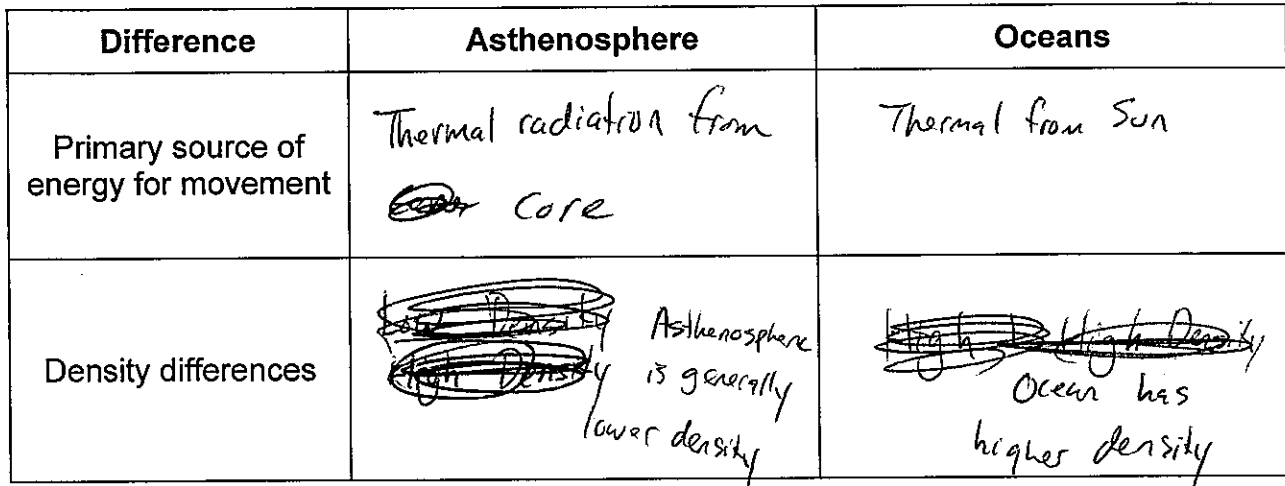 Difference
Asthenosphere
Oceans
Primary source of
energy for movement
Thermal radiation from
core
Thermal from Sun
Density differences
Low Density
High Density
Asthenosphere
is generally
lower density
High
High Density
Ocean has
higher density